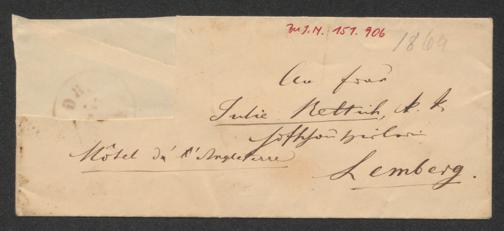 zu I.N. 151.906
1864
An Frau
Julie Rettich, k. k.
Hofschauspielerin
Hôtel de l'Angleterre
Lemberg.